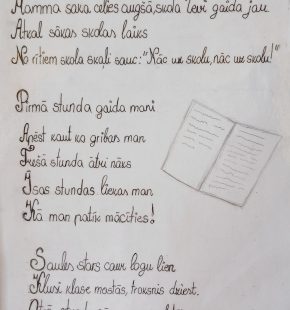 Mamma saka celies augšā, skola Tevi gaida jau.
Atkal sākas skolas laiks
No rītiem skola skaļi sauc: "Nāc uz skolu, nāc uz skolu!"
Pirmā stunda gaida mani
Apēst kaut ko gribas man
Trešā stunda ātri nāks
Īsas stundas liekas man
Kā man patīk mācīties!
Saules stars caur logu lien
Klusi klase mostās, troksnis dziest.